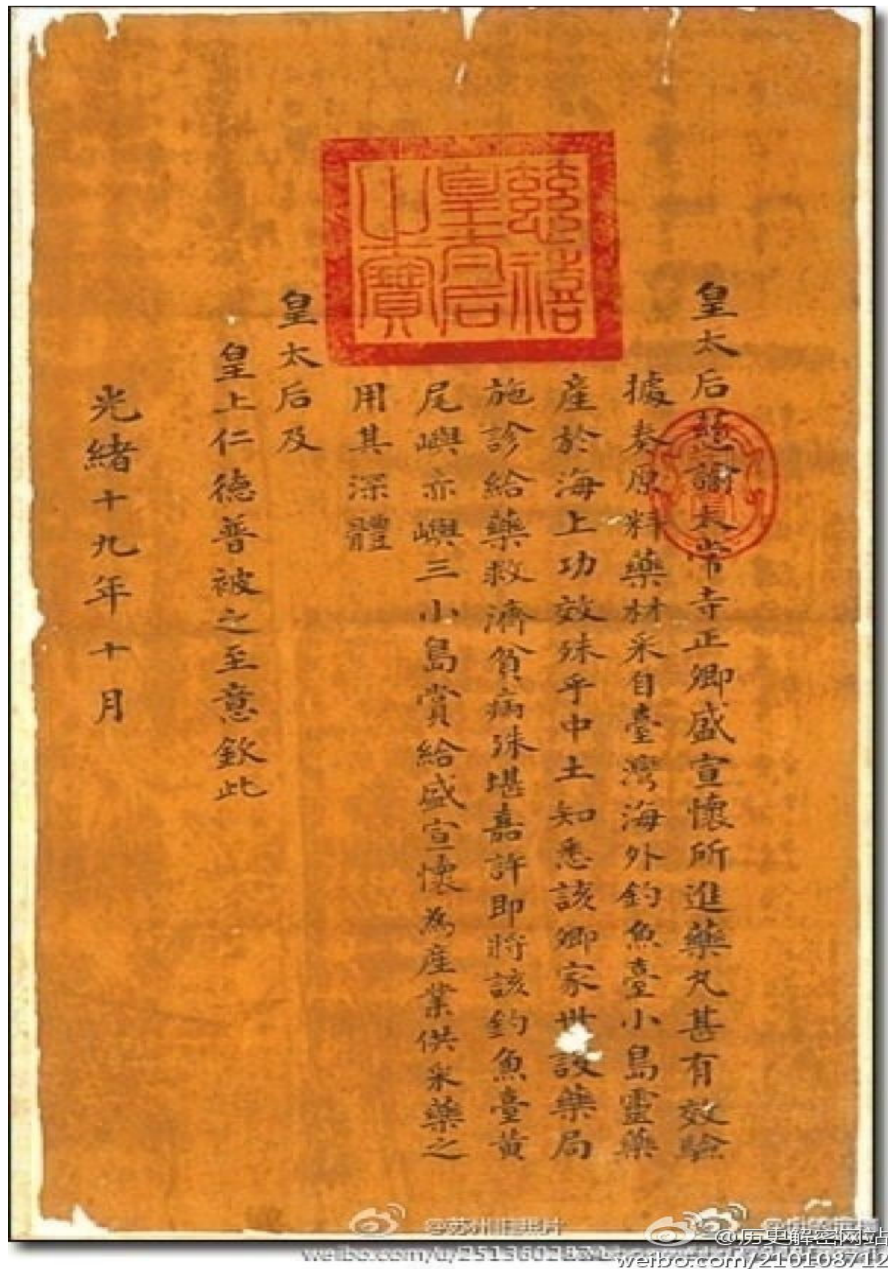 慈禧
皇太后
之寶
皇太后慈諭太常寺正卿盛宣懷所進藥丸甚有效驗
據奏原料藥材采自臺灣海外釣魚臺小島靈藥
產於海上功效殊乎中土知悉該卿家世設藥局
施診給藥救濟貧病殊堪嘉許即將該釣魚臺黃
尾嶼亦嶼三小島賞給盛宣懷為產業供采藥之
用其深體
皇太后及
皇上仁德普被之至意欽此
光緒十九年十月
@苏州旧照片
@历史解密网站
weibo.com/210108712